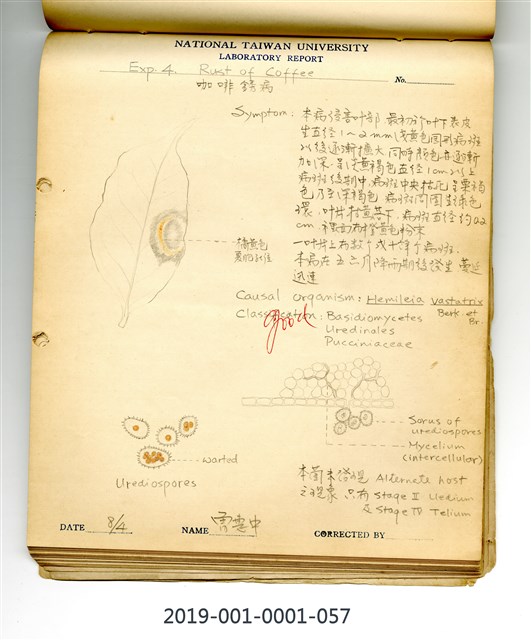 NATIONAL TAIWAN UNIVERSITY
LABORATORY REPORT
Exp. 4. Rust of Coffee
No.
咖啡銹病
Symptom: 本病侵害叶部 最初於叶下表皮
生直径1~2mm淡黄色圓形病斑
以後逐漸擴大 同時顏色亦逐漸
加深 呈淡黄褐色直径1cm以上
病斑後期中,病斑中央枯死呈栗褐
色乃至深褐色 病斑周围生綠色
環. 叶片枯黄其下, 病斑直径約0.2
cm. 裡面有橙黄色粉末
一叶片上有數个或十餘个病斑.
本病在五六月降雨期後發生 蔓延
迅速
橘黄色
夏孢子堆
Causal organism: Hemileia vastatrix
Berk et Br.
Classification: Basidiomycetes
Uredinales
Pucciniaceae
good
Sorus of
urediospores
Mycelium
(intercellular)
warted
Urediospores
本菌未發現 Alternate host
之現象 只有 Stage II Uredium
& Stage III Telium
DATE 8/4
NAME
CORRECTED BY
2019-001-0001-057